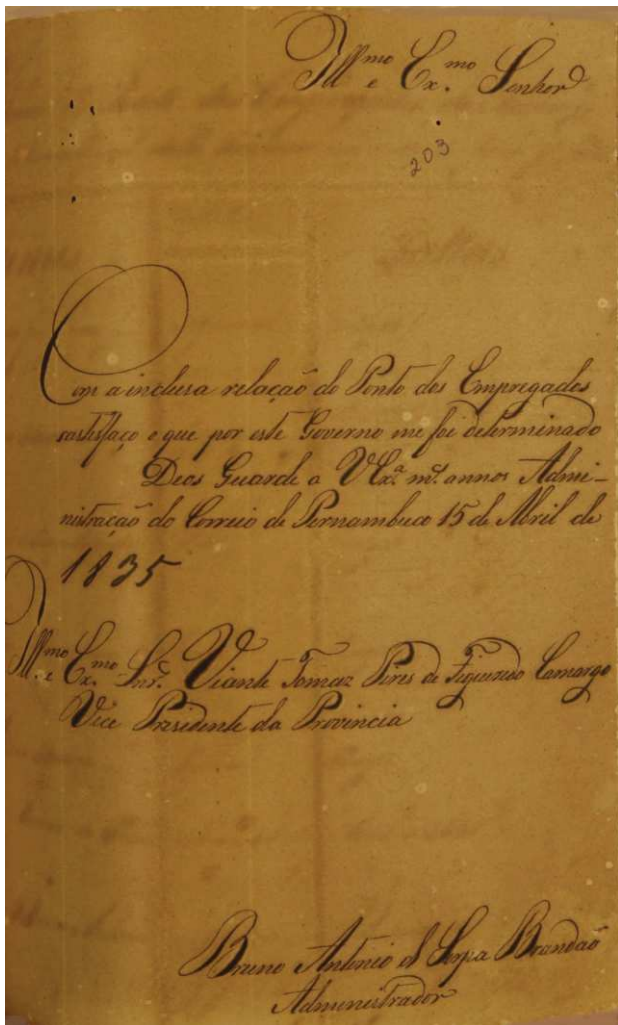 Ill.mo e Ex.mo Senhor
203
Com a incluza relação do Ponto dos Empregados
sastisfaço o que por este Governo me foi determinado
Deos Guarde a V Ex.ª m.s annos Admi-
nistração do Correio de Pernambuco 15 de Abril de
1835
Ill.mo e Ex.mo Snr. Vicente Tomaz Pires de Figueredo Camargo
Vice Prezidente da Provincia
Bruno Antonio de Serpa Brandaõ
Administrador